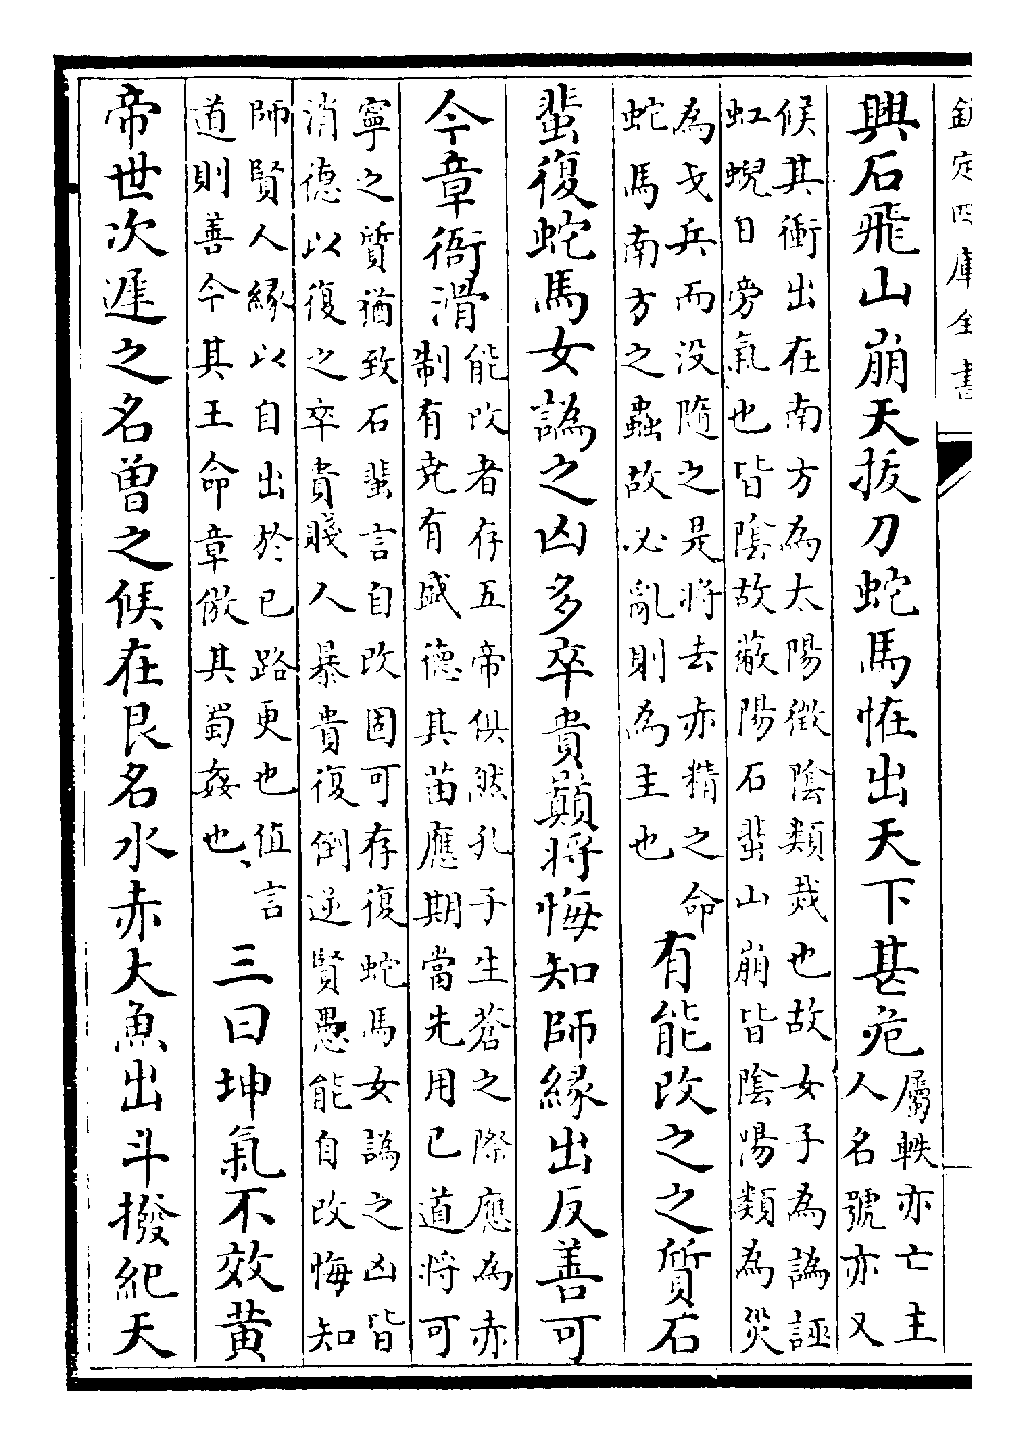 欽定四庫全書
興石飛山崩天㧞刀蛇馬恠出天下甚危屬軼亦亡主
人名號亦又
候其衝出在南方為太陽徵陰類烖也故女子為譌誣
虹蜺日旁氣也皆陰故蔽陽石蜚山崩皆陰陽類為災
為戈兵而没隨之是將去亦精之命
蛇馬南方之蟲故必亂則為主也
有能改之之質石
蜚復蛇馬女譌之凶多卒貴巔將悔知師緣出反善可
今章衙滑
能改者存五帝供然孔子生蒼之際應為赤
制有尭有盛德其苗應期當先用已道將可
寧之質猶致石蜚言自改固可存復蛇馬女譌之凶皆
消德以復之卒貴賤人暴貴復倒逆賢愚能自改悔知
師賢人緣以自出於已路更也值言
道則善今其王命章倣其蜀姦也
三曰坤氣不效黄
帝世次遲之名曾之候在艮名水赤大魚出斗撥紀天